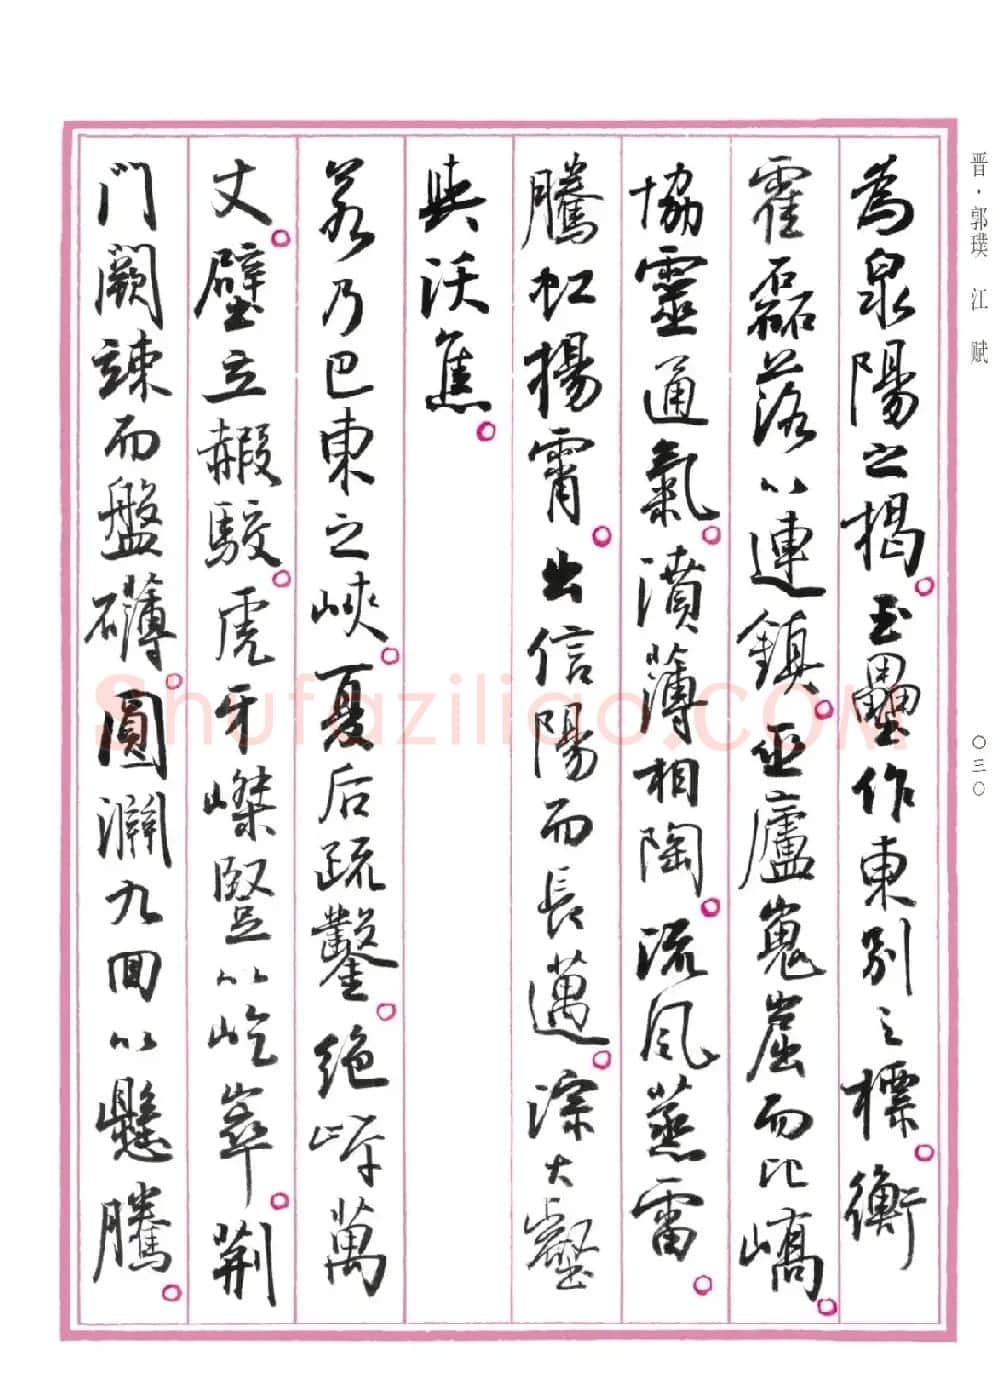 晋·郭璞 江 赋
〇三〇
為泉陽之揭。玉壘作東別之標。衡
霍磊落以連鎮。巫廬嵬崫而比嶠。
協靈通氣。濆薄相陶。流風蒸雷。
騰虹揚霄。出信陽而長邁。淙大壑
與沃焦。
若乃巴東之峽。夏后疏鑿。絕岸萬
丈。壁立赮駮。虎牙嵥豎以屹崒。荊
門闕竦而盤礴。圓淵九回以懸騰。
Shufaziliao.COM